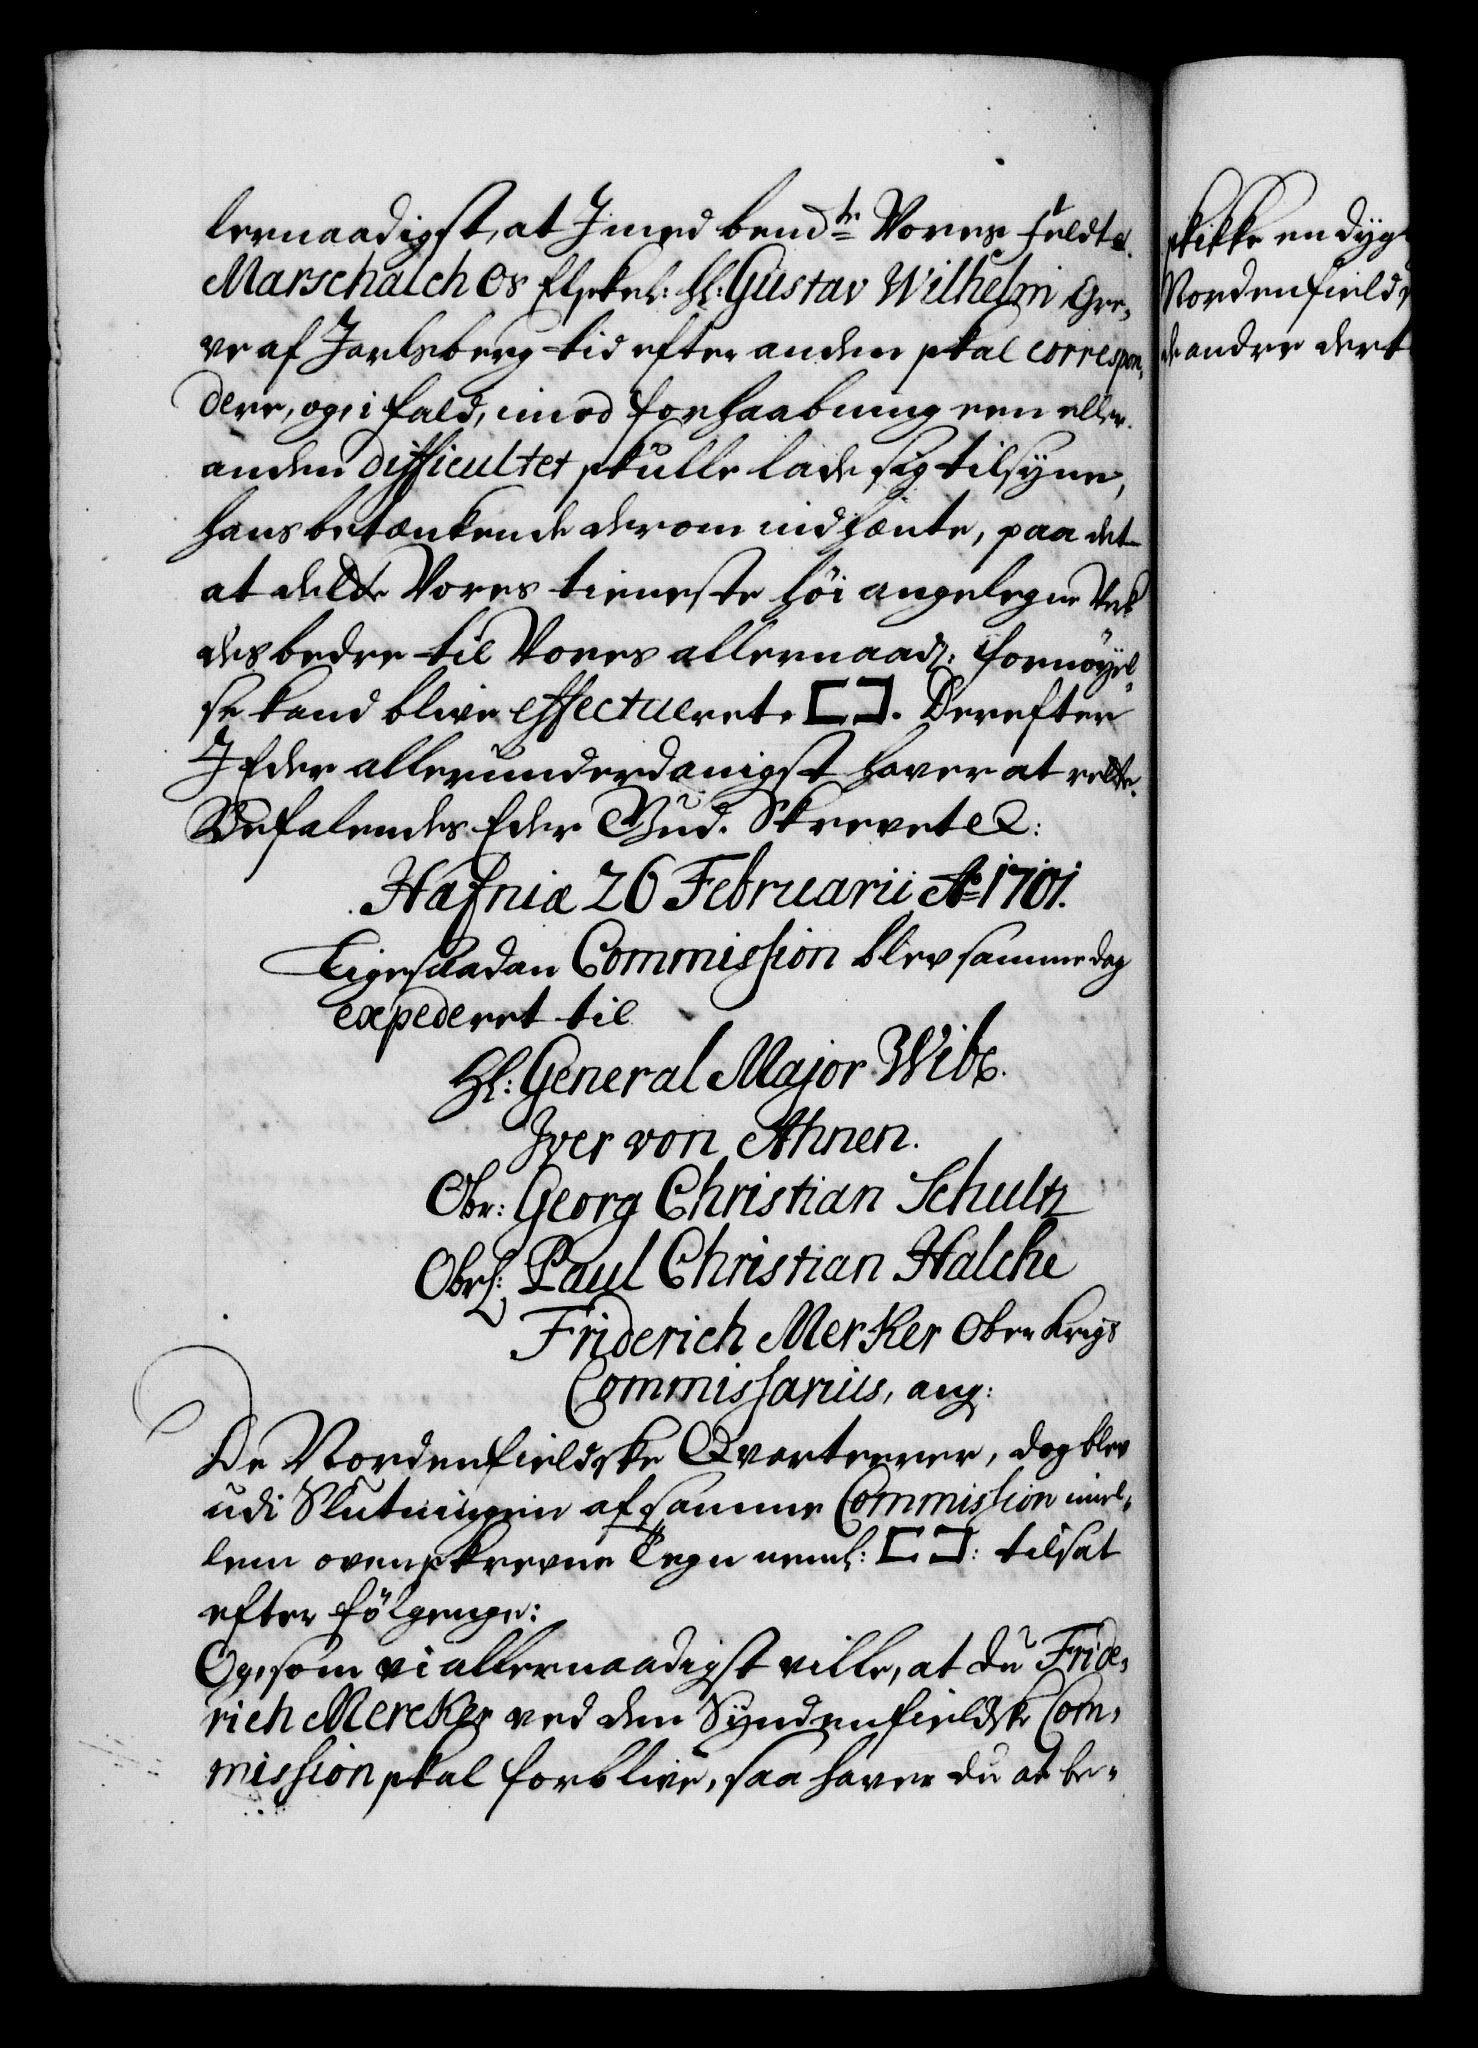 lernaadigst, at I med bemd.te Vores Feldt
Marschalch Os Elskel: Hl: Gustav Wilhelm Gre,
ve af Jarlsberg tid efter anden skal correspon,
dere, og, i fald, imod forhaabning een eller
anden difficultet skulle lade sig tilsyne,
hans betænkende derom indhænte, paa det
at dette Vores tieneste höi angelegne Verk
des bedre til Vores allernaad: fornöyel,
se kand blive effectueret. [ ]. Derefter
I Eder allerunderdanigst haver at rette.
Befalendes Eder Gud. Skrevet &:
Hafniæ 26 Februarii Ao 1701.
Ligesaadan Commission blev samme dag
expederet til
Hl: General Major Wibe.
Iver von Ahnen.
Obr: Georg Christian Schultz
Obrl: Paul Christian Halche
Friderich Merker Ober Krigs
Commissarius, ang:
De Nordenfieldske Qvarterer, dog blev
udi Slutningen af samme Commission imel,
lem ovenskrevne Tegn neml: [ ]: tilsat
efter fölgenge:
Og, som vi allernaadigst ville, at du Fride,
rich Mercker ved den Syndenfieldske Com,
mission skal forblive, saa haver du at be,
skikke en dyg
Nordenfields
de andre dert